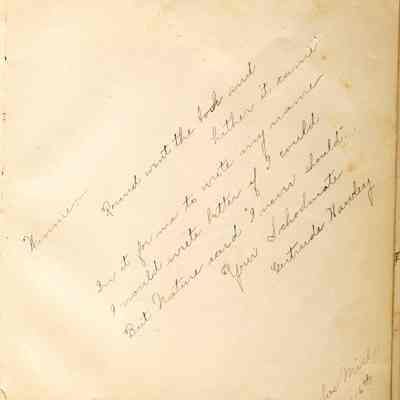 Winnie—
Round went the book and
hither it came
In it for me to wrote my name
I would wrote better if I could
But Nature said I never should—
Your Schoolmate
Gertrude
Mill
6th